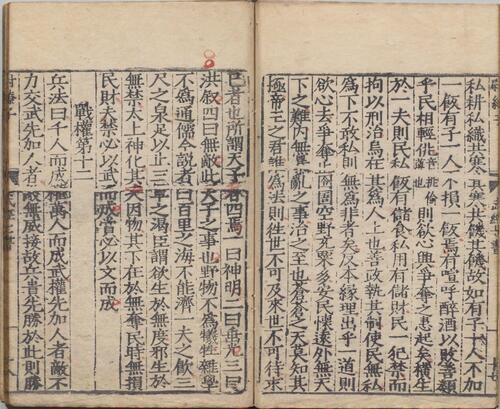 私耕私織共寒其寒共饑其饑故如有子十人不加
一飯有子一人不損一飯焉有喧呼酖酒以敗善類
乎民相輕佻則欲心興爭奪之患起矣橫生
於一夫則民私飯有儲食私用有儲財民一犯禁而
拘以刑治烏在其為人上也善政執其制使民無私
為下不敢私則無為非者矣反本緣理出乎一道則
欲心去爭奪止囹圄空野充粟多安民懷遠外無天
下之難內無暴亂之事治之至也蒼蒼之天莫知其
極帝王之君誰為法則往世不可及來世不可待求
已者也所謂天子者四焉一曰神明二曰垂光三曰
洪叙四曰無敵此天子之事也野物不為犧牲雜學
不為通儒今說者曰百里之海不能濟一夫之飲三
尺之泉足以止三軍之渴臣謂欲生於無度邪生於
無禁太上神化其次因物其下在於無奪民時無損
民財夫禁必以武而成賞必以文而成
戰權第十二
兵法曰千人而成權萬人而成武權先加人者敵不
力交武先加人者敵無威接故兵貴先勝於此則勝